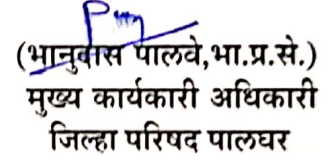 (भानुदास पालवे,भा.प्र.से.)
मुख्य कार्यकारी अधिकारी
जिल्हा परिषद पालघर